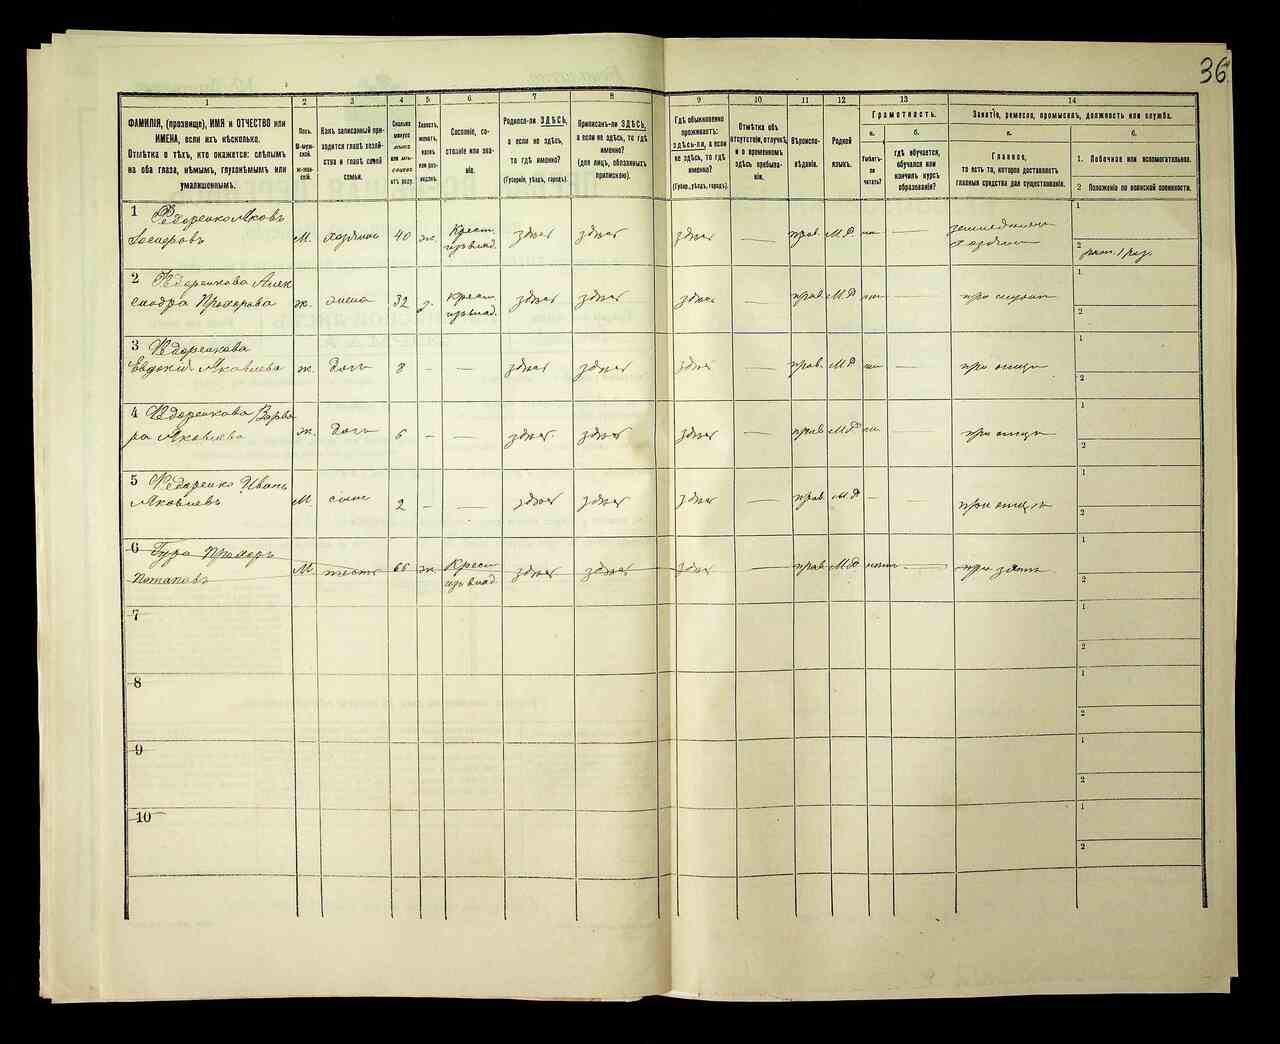 36
1 2 3 4 5 6 7 8 9 10 11 12 13 14
ФАМИЛІЯ, (прозвище), ИМЯ и ОТЧЕСТВО или
ИМЕНА, если ихъ нѣсколько.
Отмѣтка о тѣхъ, кто окажется: слѣпымъ
на оба глаза, нѣмымъ, глухонѣмымъ или
умалишеннымъ.
Полъ.
М-муж-
ской.
ж-жен-
скій.
Какъ записанный при-
ходится главѣ хозяй-
ства и главѣ своей
семьи.
Сколько
минуло
лѣтъ
или мѣ-
сяцевъ
отъ роду.
Холостъ,
женатъ,
вдовъ
или раз-
веденъ.
Сословіе, со-
стояніе или зва-
ніе.
Родился-ли ЗДѢСЬ,
а если не здѣсь,
то гдѣ именно?
(Губернія, уѣздъ, городъ).
Приписанъ-ли ЗДѢСЬ,
а если не здѣсь, то гдѣ
именно?
(для лицъ, обязанныхъ
припискою).
Гдѣ обыкновенно
проживаетъ:
здѣсь-ли, а если
не здѣсь, то гдѣ
именно?
(Губер., уѣздъ, городъ).
Отмѣтка объ
отсутствіи, отлучкѣ
и о временномъ
здѣсь пребыва-
ніи.
Вѣроиспо-
вѣданіе.
Родной
языкъ.
Грамотность.
а.
Умѣетъ-
ли
читать?
б.
гдѣ обучается,
обучался или
кончилъ курсъ
образованія?
Занятіе, ремесло, промыселъ, должность или служба.
а.
Главное,
то есть то, которое доставляетъ
главныя средства для существованія.
б.
1. Побочное или вспомогательное.
2 Положеніе по воинской повинности.
1 Федоренко Яковъ
М. хозяинъ 40 ж. Крест. здѣсь здѣсь здѣсь — прав. М.Р. — 1
изъ влад. 2
2 Федоренкова Алек
сандра Прохорова ж. жена 32 крест. здѣсь здѣсь здѣсь — прав. М.Р. — 1
изъ влад. 2
3 Федоренкова
Евдокія Яковлева ж. дочь 8 - — здѣсь здѣсь здѣсь — прав. М.Р. — при отцѣ 1
2
4 Федоренкова Варва
ра Яковлева ж. дочь 6 - — здѣсь здѣсь здѣсь — прав М.Р. — при отцѣ 1
2
5 Федоренко Иванъ
Яковлевъ М. сынъ 2 - — здѣсь здѣсь здѣсь — прав М.Р. - — при отцѣ 1
2
6 Гура Прохоръ
Потаповъ М тесть 66 ж. Крест. здѣсь здѣсь здѣсь — прав М.Р. — при зятѣ 1
изъ влад. 2
7 1
2
8 1
2
9 1
2
10 1
2